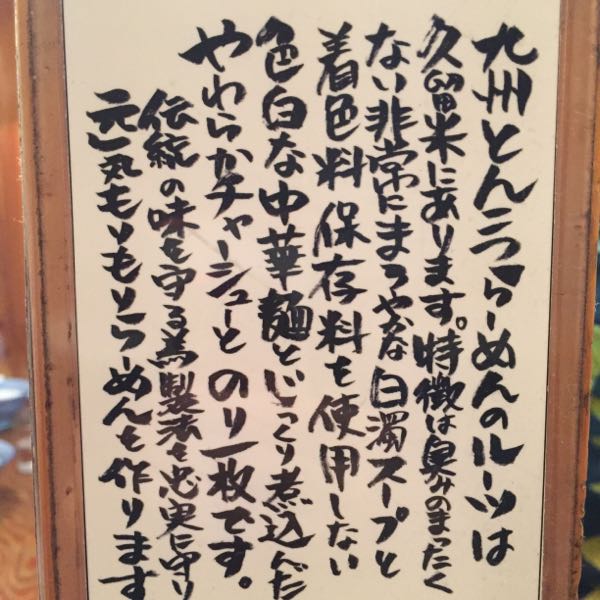 九州とんこつらーめんのルーツは
久留米にあります。特徴は臭みのまったく
ない非常にまろやかな白濁スープと
着色料保存料も使用しない
色白な中華麺とじっくり煮込んだ
やわらかチャーシューとのり一枚です。
伝統の味を守る為製法を忠実に守り
元気丸もりもりらーめんを作ります